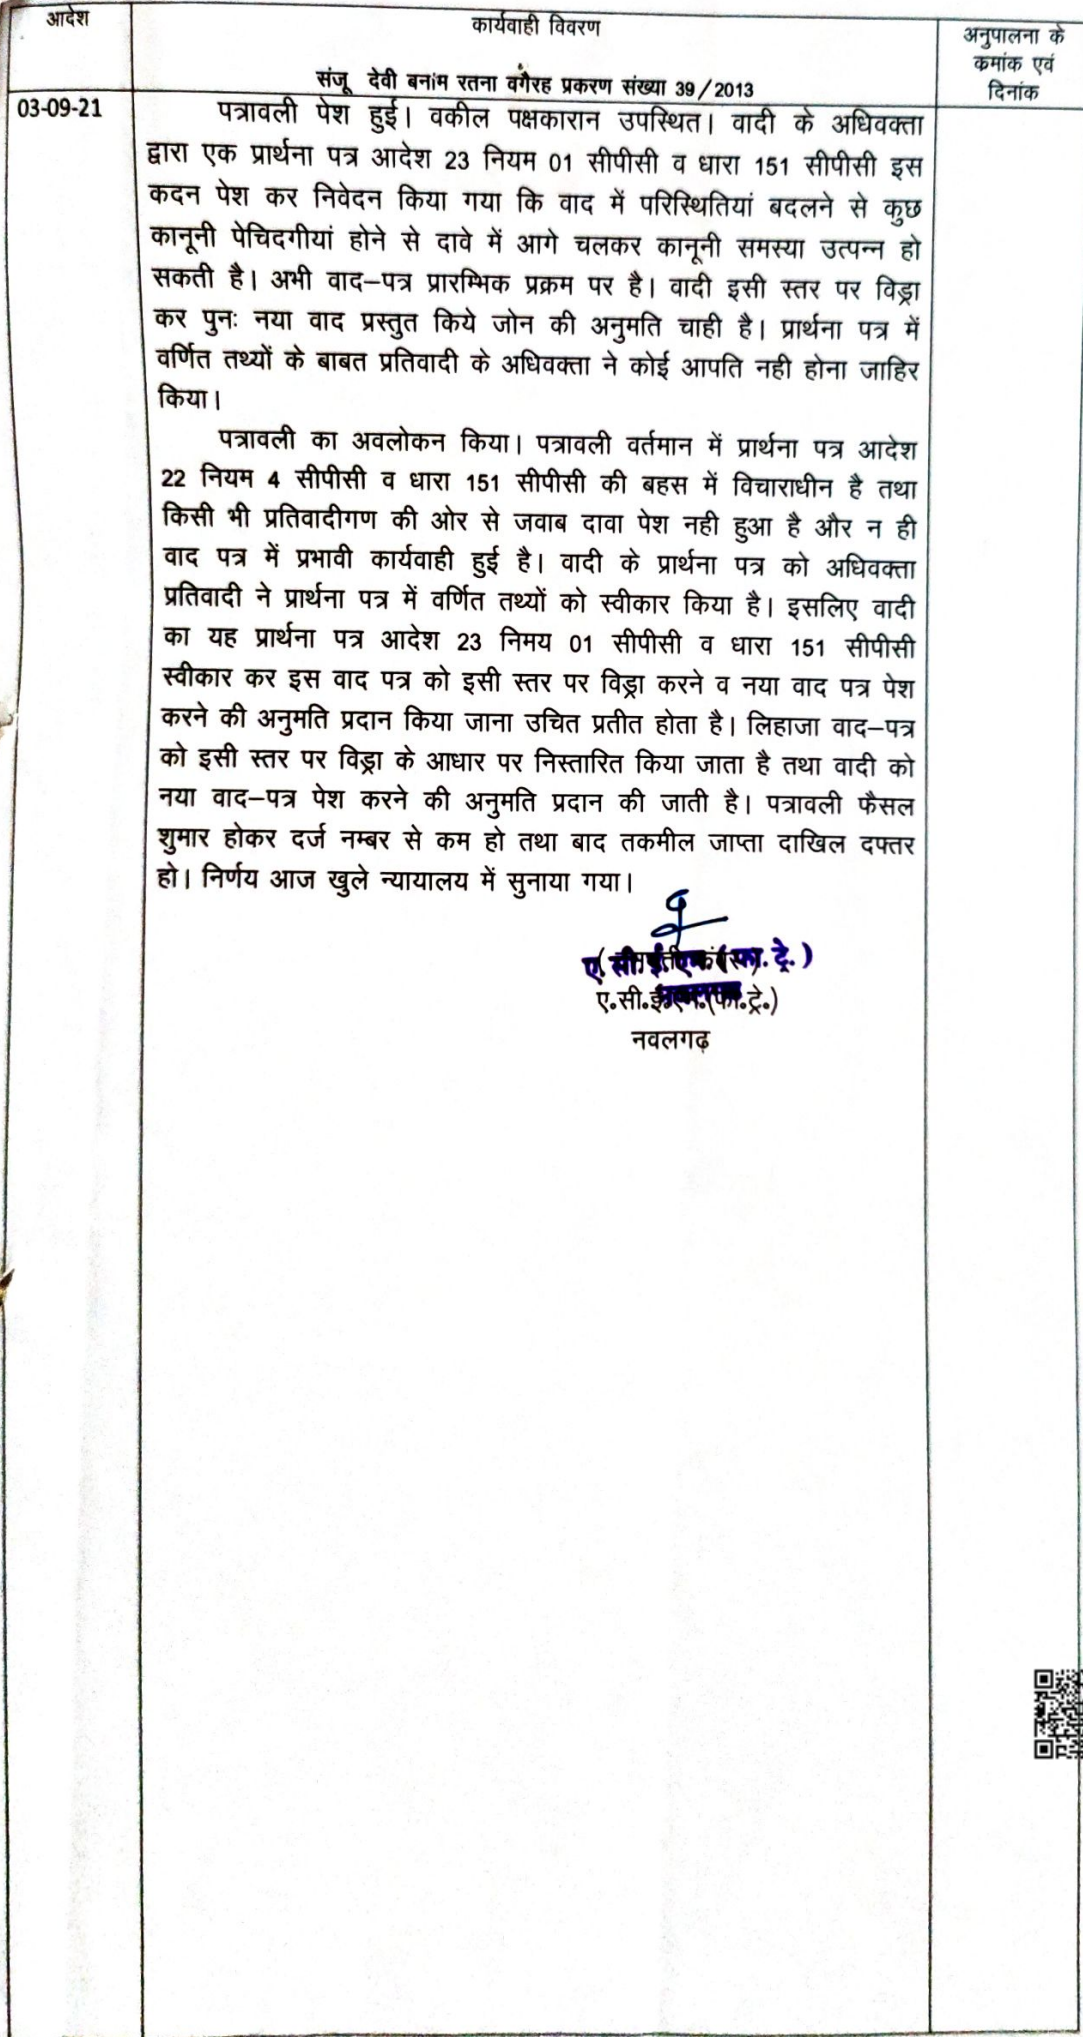 आदेश
कार्यवाही विवरण
अनुपालना के
क्रमांक एवं
दिनांक
संजू देवी बनाम रतना वगैरह प्रकरण संख्या 39/2013
03-09-21
पत्रावली पेश हुई। वकील पक्षकारान उपस्थित। वादी के अधिवक्ता
द्वारा एक प्रार्थना पत्र आदेश 23 नियम 01 सीपीसी व धारा 151 सीपीसी इस
कदन पेश कर निवेदन किया गया कि वाद में परिस्थितियां बदलने से कुछ
कानूनी पेचिदगीयां होने से दावे में आगे चलकर कानूनी समस्या उत्पन्न हो
सकती है। अभी वाद–पत्र प्रारम्भिक प्रक्रम पर है। वादी इसी स्तर पर विड्रा
कर पुनः नया वाद प्रस्तुत किये जोन की अनुमति चाही है। प्रार्थना पत्र में
वर्णित तथ्यों के बाबत प्रतिवादी के अधिवक्ता ने कोई आपति नही होना जाहिर
किया।
पत्रावली का अवलोकन किया। पत्रावली वर्तमान में प्रार्थना पत्र आदेश
22 नियम 4 सीपीसी व धारा 151 सीपीसी की बहस में विचाराधीन है तथा
किसी भी प्रतिवादीगण की ओर से जवाब दावा पेश नही हुआ है और न ही
वाद पत्र में प्रभावी कार्यवाही हुई है। वादी के प्रार्थना पत्र को अधिवक्ता
प्रतिवादी ने प्रार्थना पत्र में वर्णित तथ्यों को स्वीकार किया है। इसलिए वादी
का यह प्रार्थना पत्र आदेश 23 निमय 01 सीपीसी व धारा 151 सीपीसी
स्वीकार कर इस वाद पत्र को इसी स्तर पर विड्रा करने व नया वाद पत्र पेश
करने की अनुमति प्रदान किया जाना उचित प्रतीत होता है। लिहाजा वाद–पत्र
को इसी स्तर पर विड्रा के आधार पर निस्तारित किया जाता है तथा वादी को
नया वाद–पत्र पेश करने की अनुमति प्रदान की जाती है। पत्रावली फैसल
शुमार होकर दर्ज नम्बर से कम हो तथा बाद तकमील जाप्ता दाखिल दफ्तर
हो। निर्णय आज खुले न्यायालय में सुनाया गया।
ए. सी. ई. एम. (फा. ट्रे.)
ए.सी.ई.एम.(फा.ट्रे.)
नवलगढ़